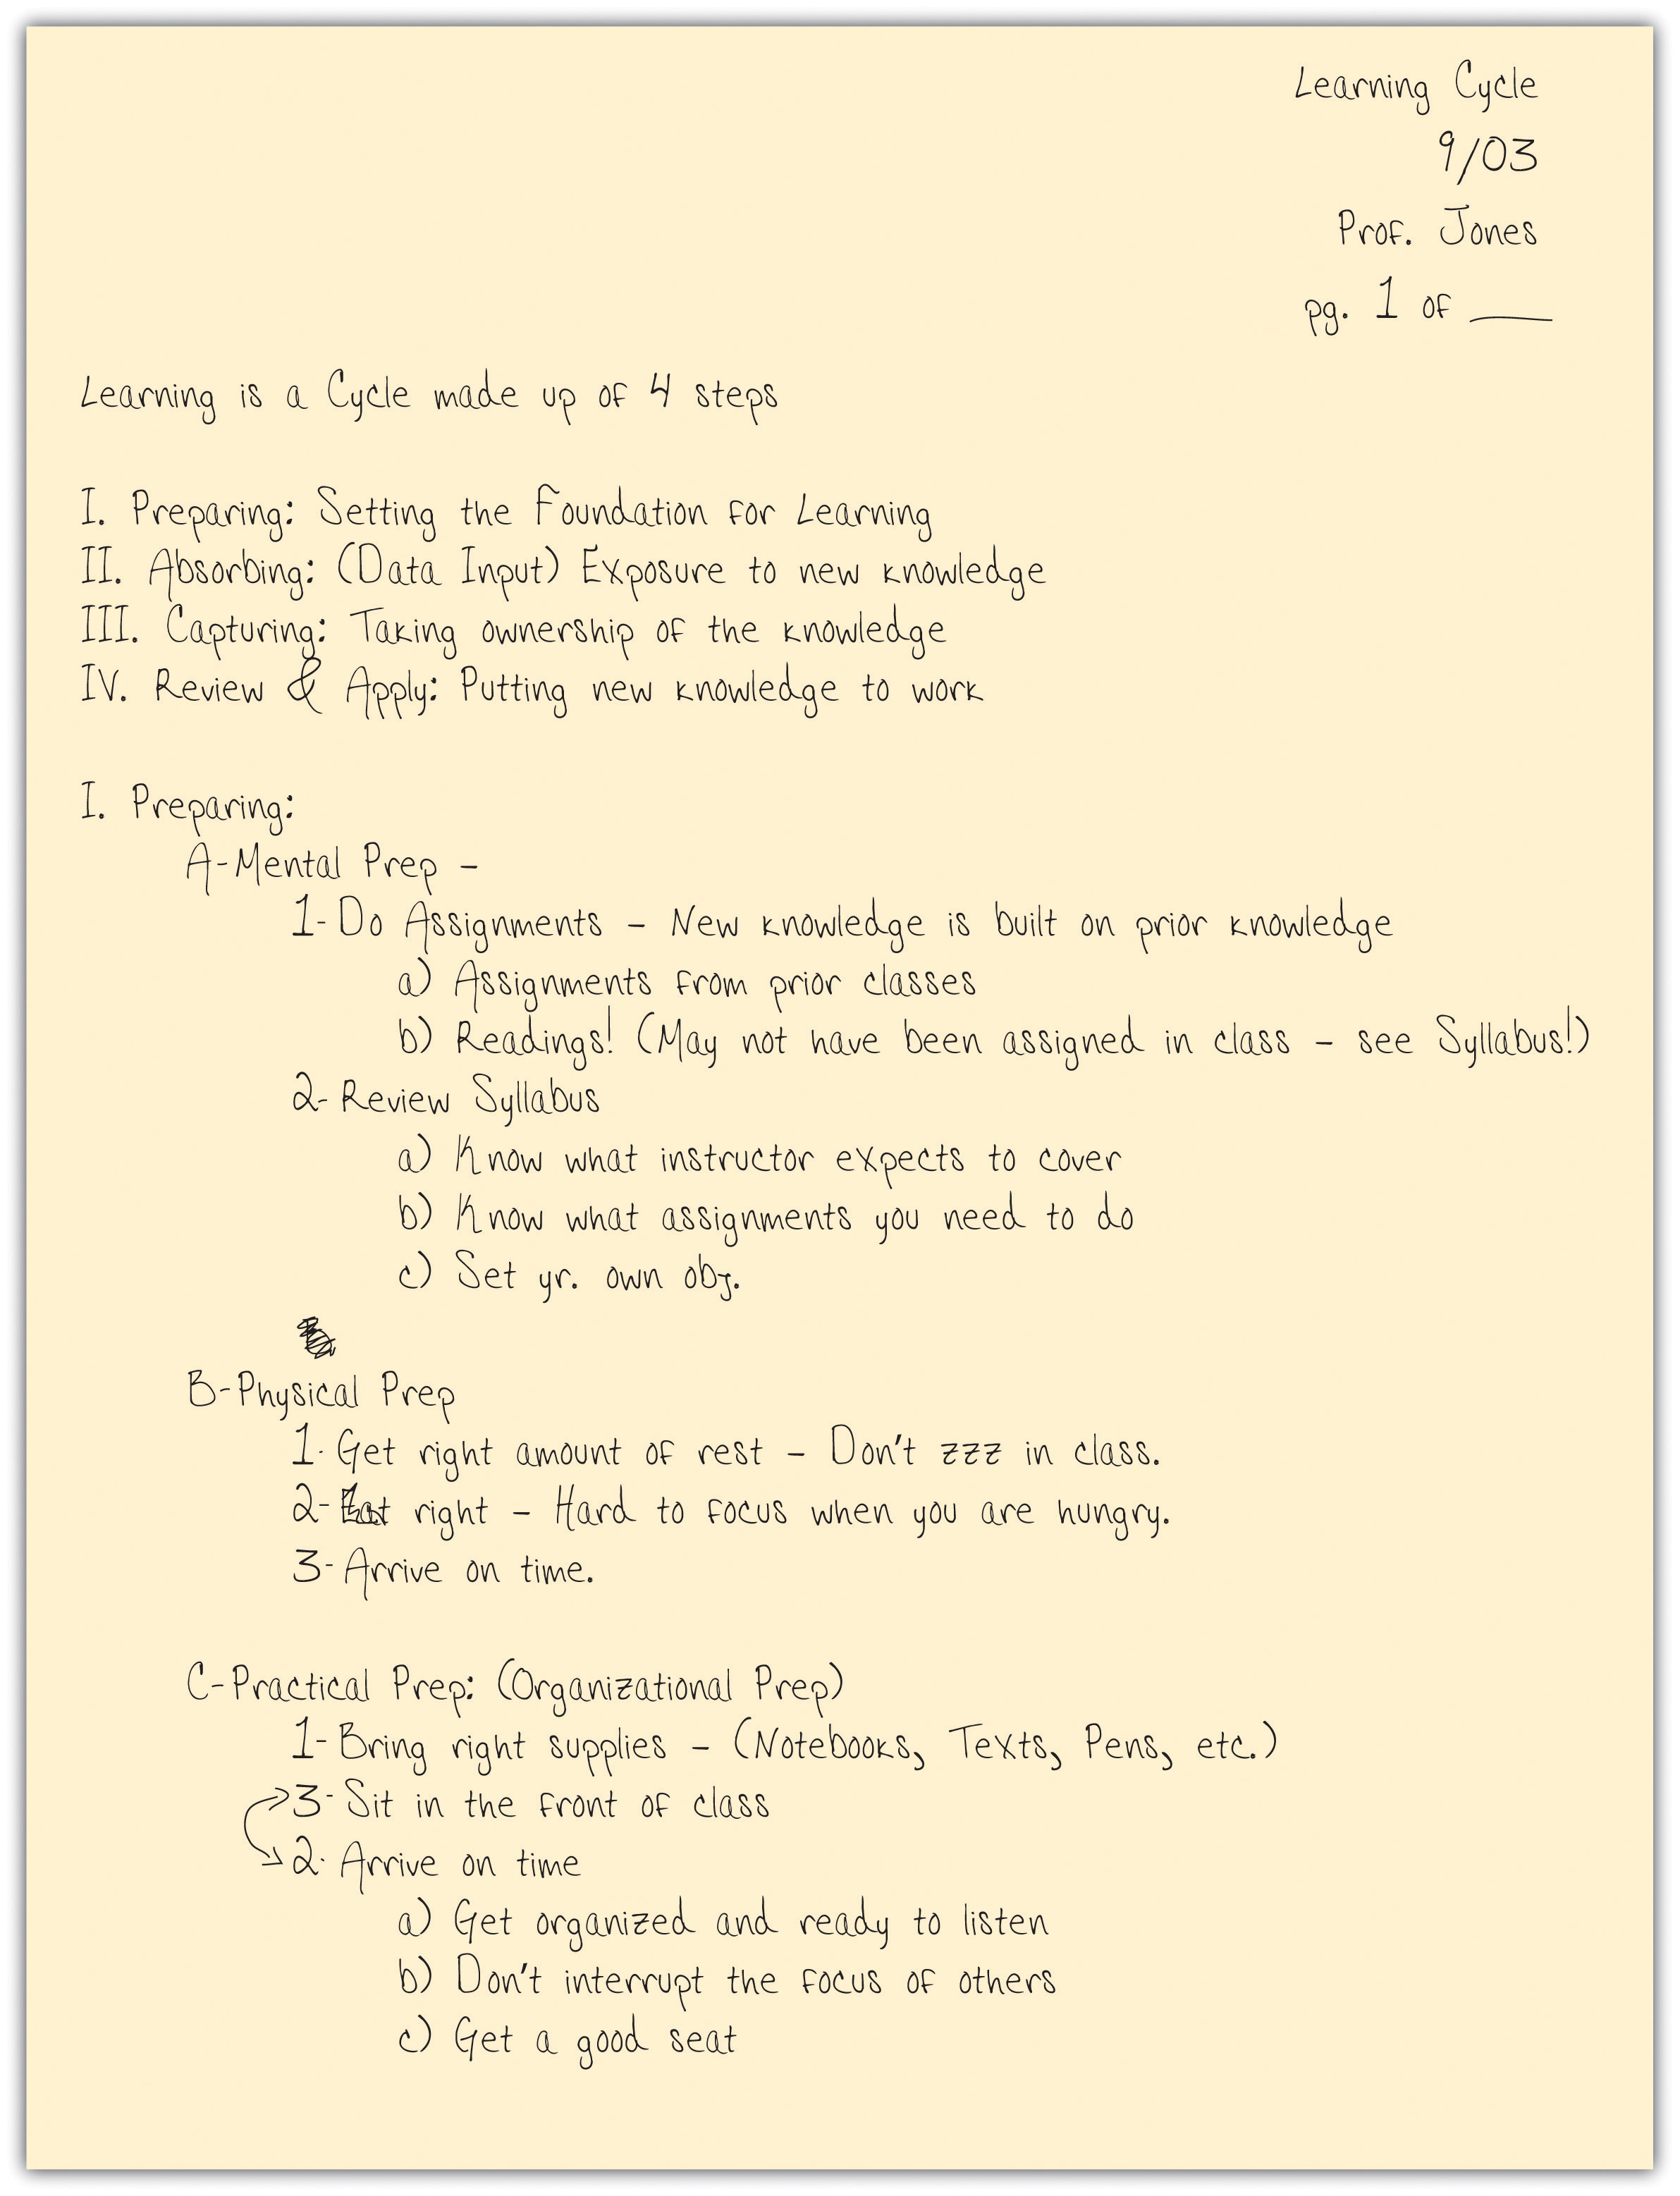 Learning Cycle
9/03
Prof. Jones
pg. 1 of ___
Learning is a Cycle made up of 4 steps
I. Preparing: Setting the Foundation for Learning
II. Absorbing: (Data Input) Exposure to new knowledge
III. Capturing: Taking ownership of the knowledge
IV. Review & Apply: Putting new knowledge to work
I. Preparing:
A-Mental Prep -
1- Do Assignments - New knowledge is built on prior knowledge
a) Assignments from prior classes
b) Readings! (May not have been assigned in class - see Syllabus!)
2- Review Syllabus
a) Know what instructor expects to cover
b) Know what assignments you need to do
c) Set yr. own obj.
B-Physical Prep
1- Get right amount of rest - Don't zzz in class.
2- Eat right - Hard to focus when you are hungry.
3- Arrive on time.
C-Practical Prep: (Organizational Prep)
1- Bring right supplies - (Notebooks, Texts, Pens, etc.)
3- Sit in the front of class
2- Arrive on time
a) Get organized and ready to listen
b) Don't interrupt the focus of others
c) Get a good seat